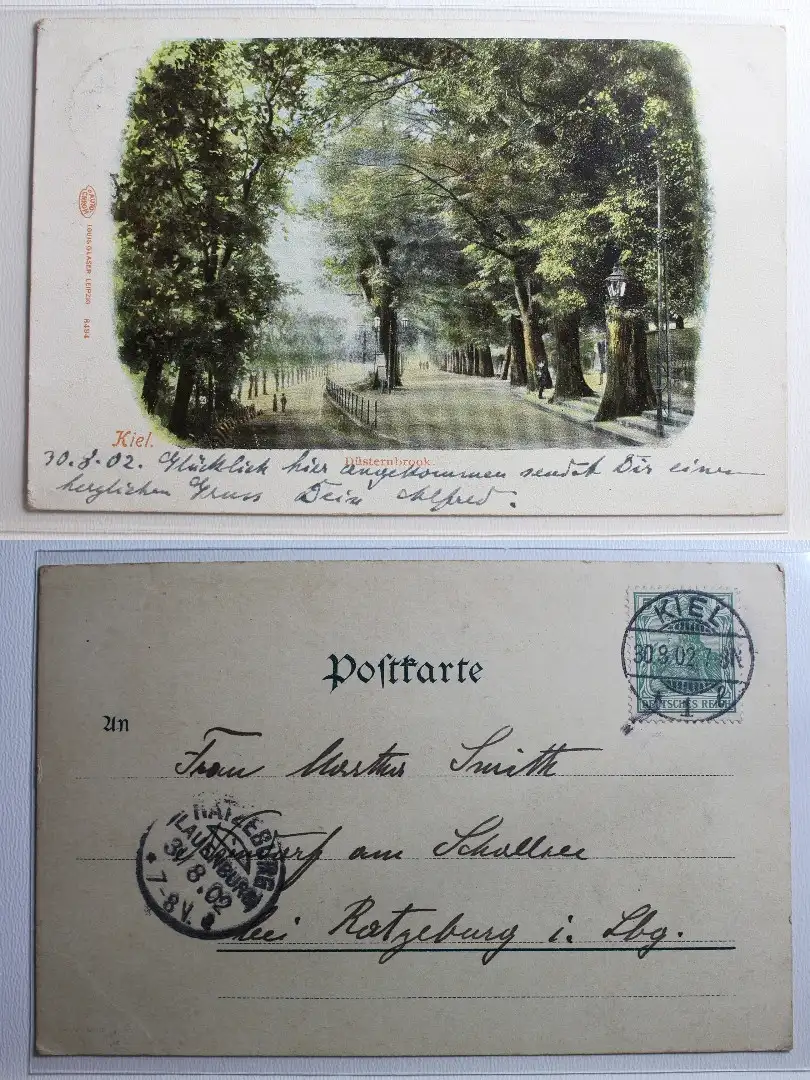 LOUIS GLASER LEIPZIG
8494
Kiel.
Düsternbrook
30.8.02. Glücklich hier angekommen sendet Dir einen
herzlichen Gruss Dein Alfred.
KIEL
30.8.02 7-8N
1
DEUTSCHES REICH
Postkarte
An
Frau Martha Smith
am Schallsee
RATZEBURG
(LAUENBURG)
31.8.02
7-8V.
bei Ratzeburg i. Lbg.